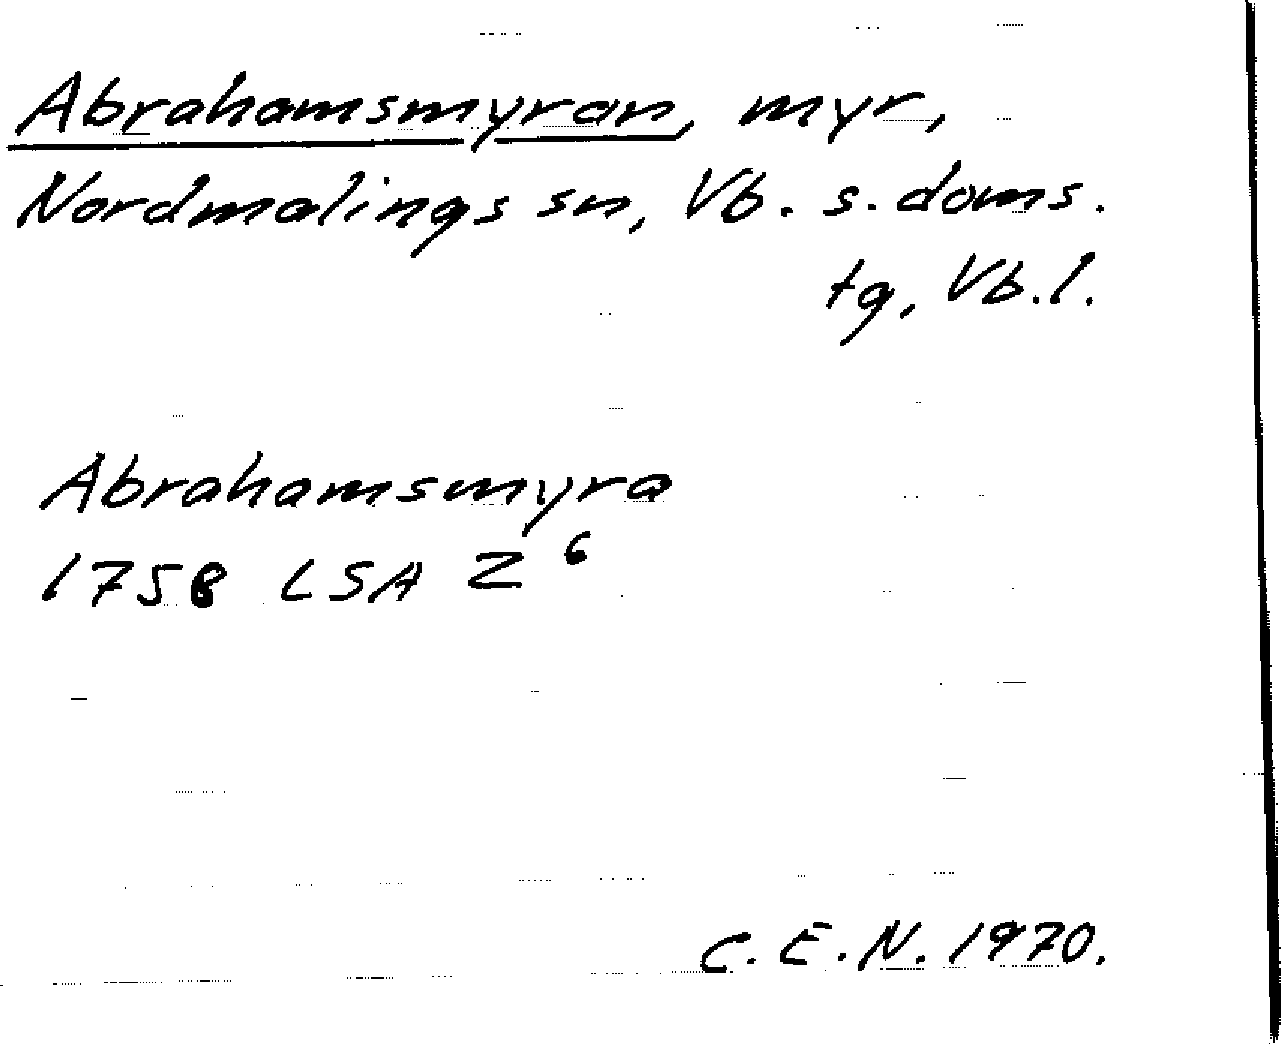 Abrahamsmyran, myr,
Nordmalings sn, Vb. s. doms.
tg, Vb. l.
Abrahamsmyra
1758 LSA Z 6
C. E. N. 1970.